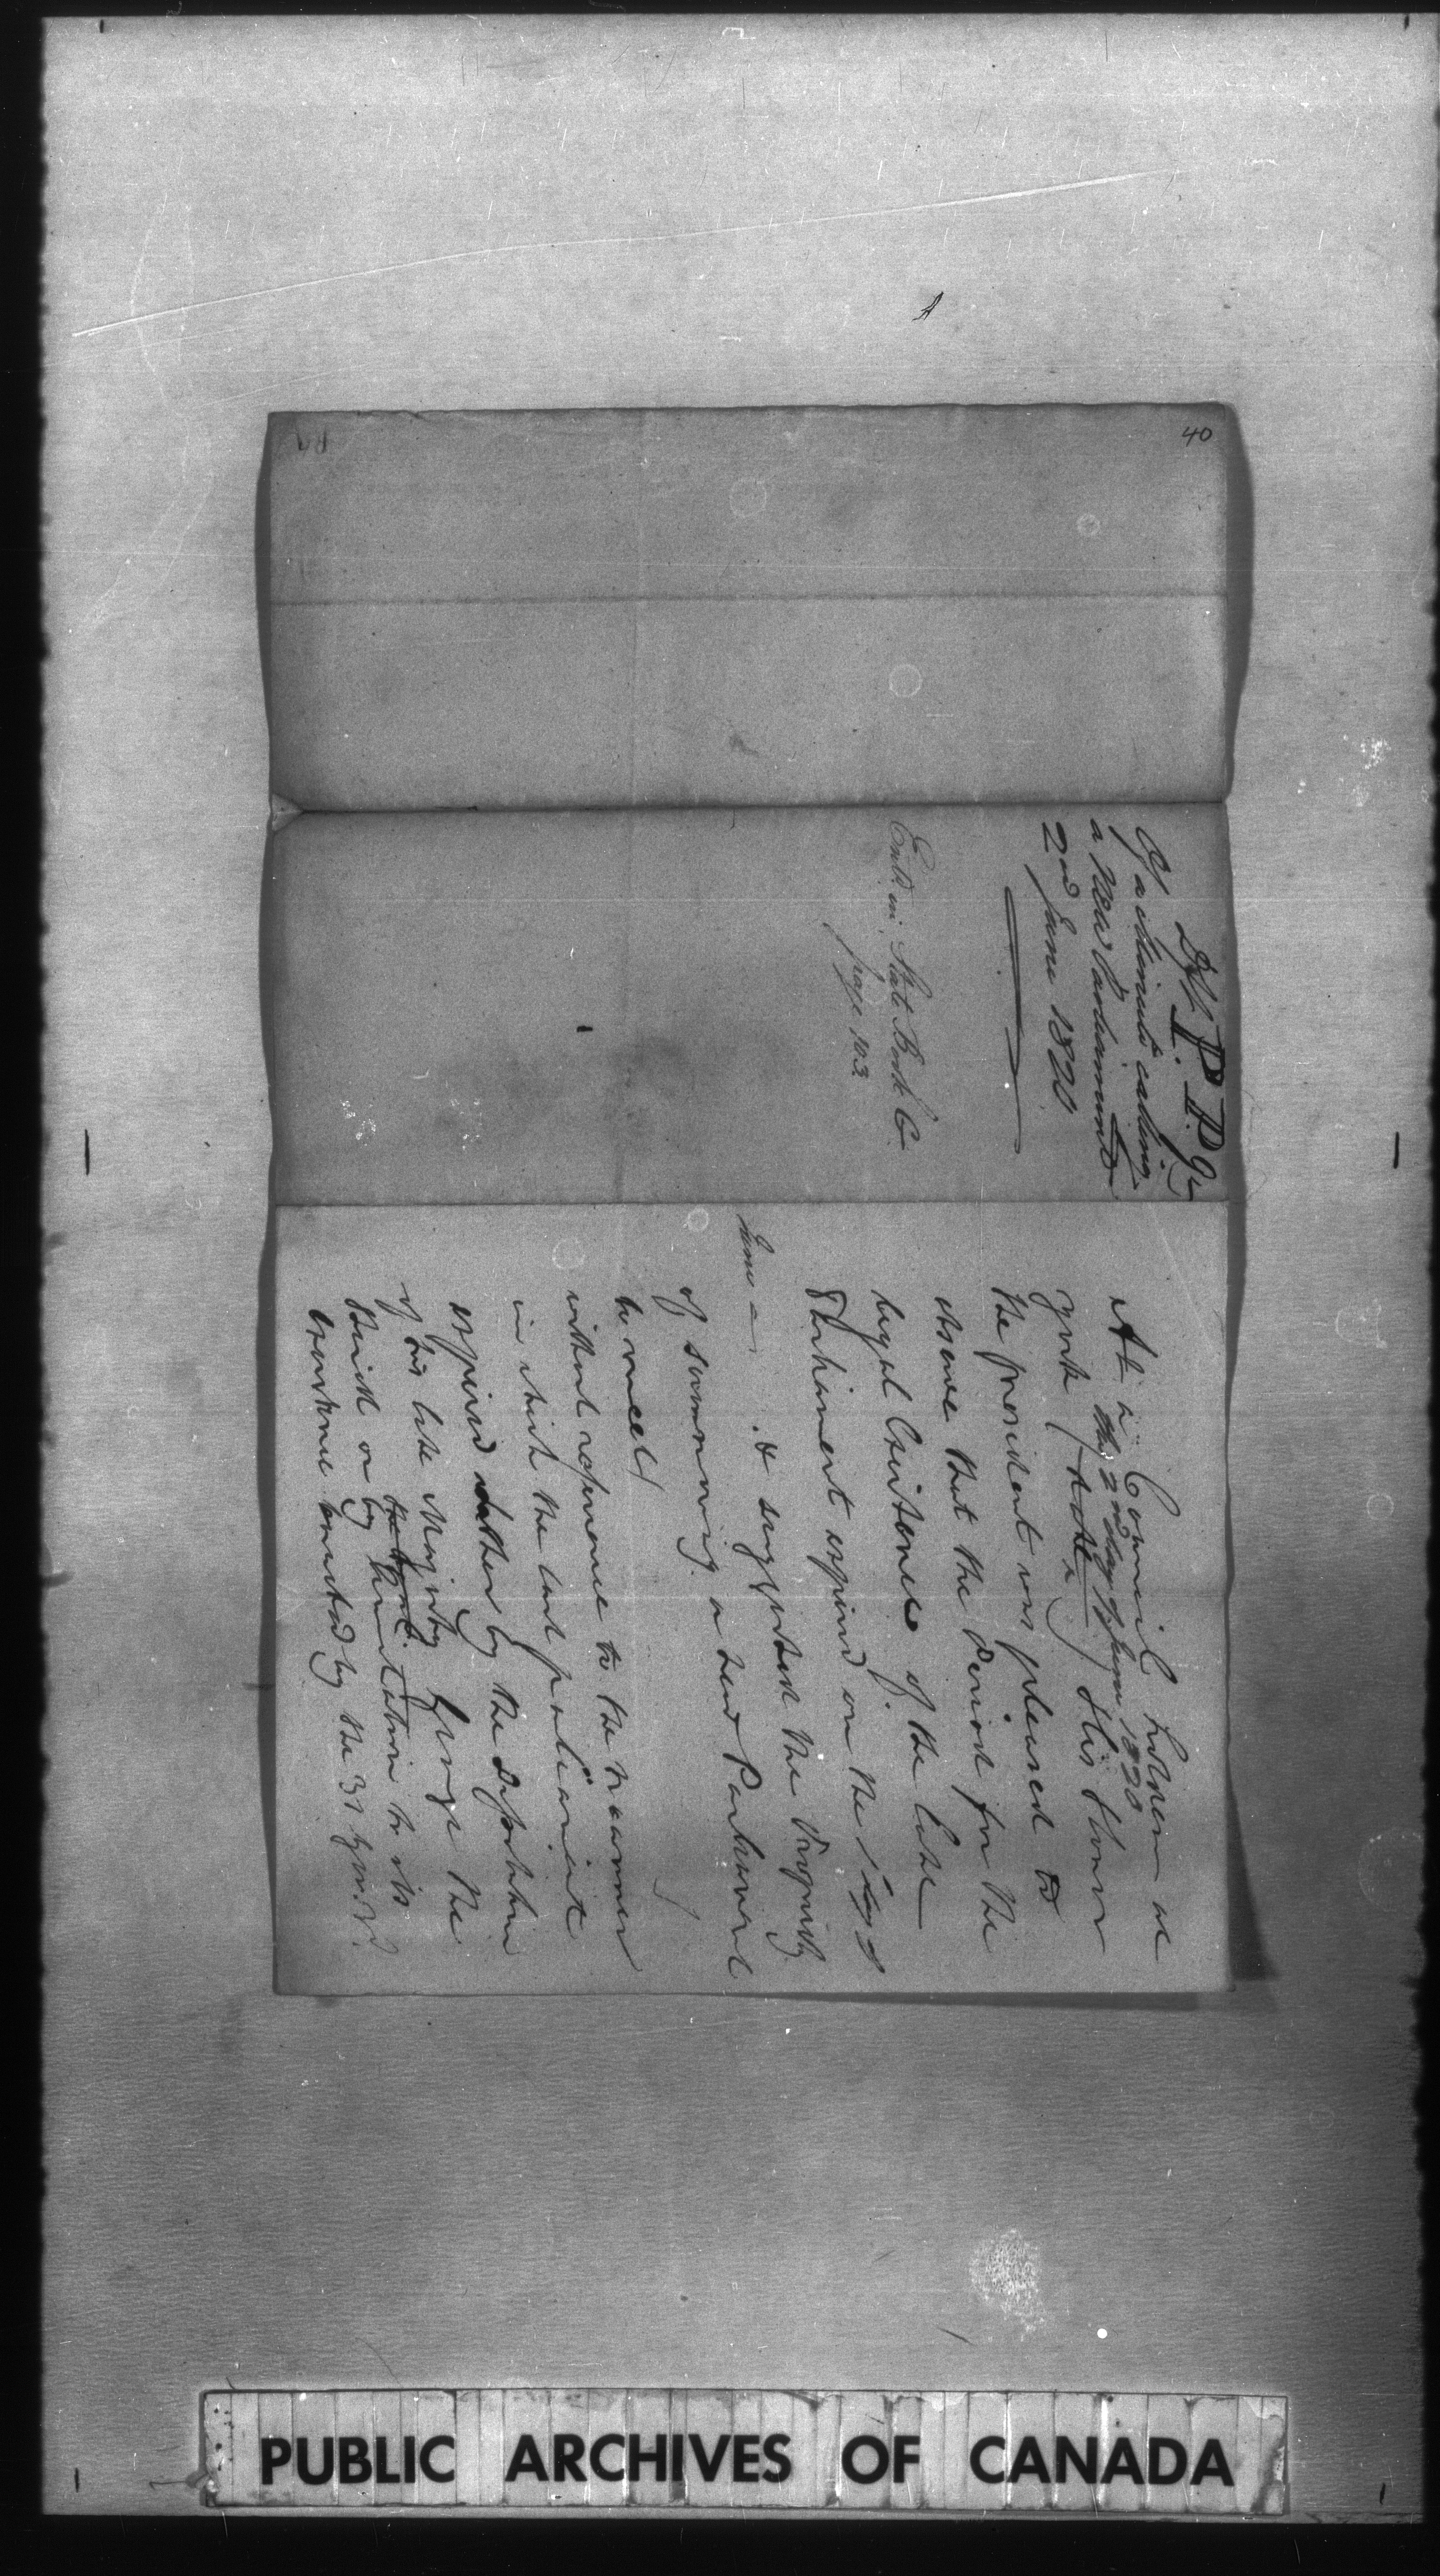 40
Dft P. P. 9
Of a Minute calling
a New Parliament
2nd June 1820
Entd. in State Book G
page 103
At a Council holden at
the 2nd day of June 1820
York (date) His Honor
the president was pleased to
observe that the Period for the
legal Existence of the late
Parliament expired on the
June &
suggested the Propriety
of summoning a new Parliament
to meet
without reference to the manner
in which the last parliament
expired whether by the
of his late Majesty George the
Third or by the limitation to its
existence enacted by the 31
PUBLIC ARCHIVES OF CANADA